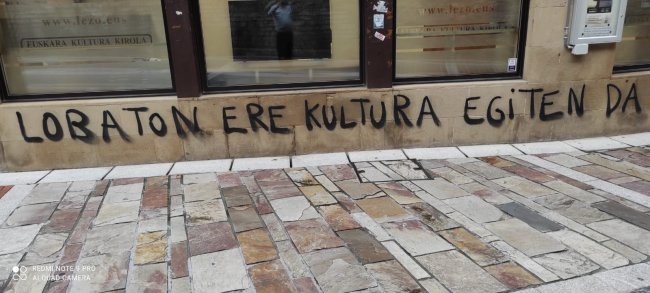 www.lezo.eus
www.lezo.eus
EUSKARA KULTURA KIROLA
LOBATON ERE KULTURA EGITEN DA
REDMI NOTE 7 PRO
AI QUAD CAMERA